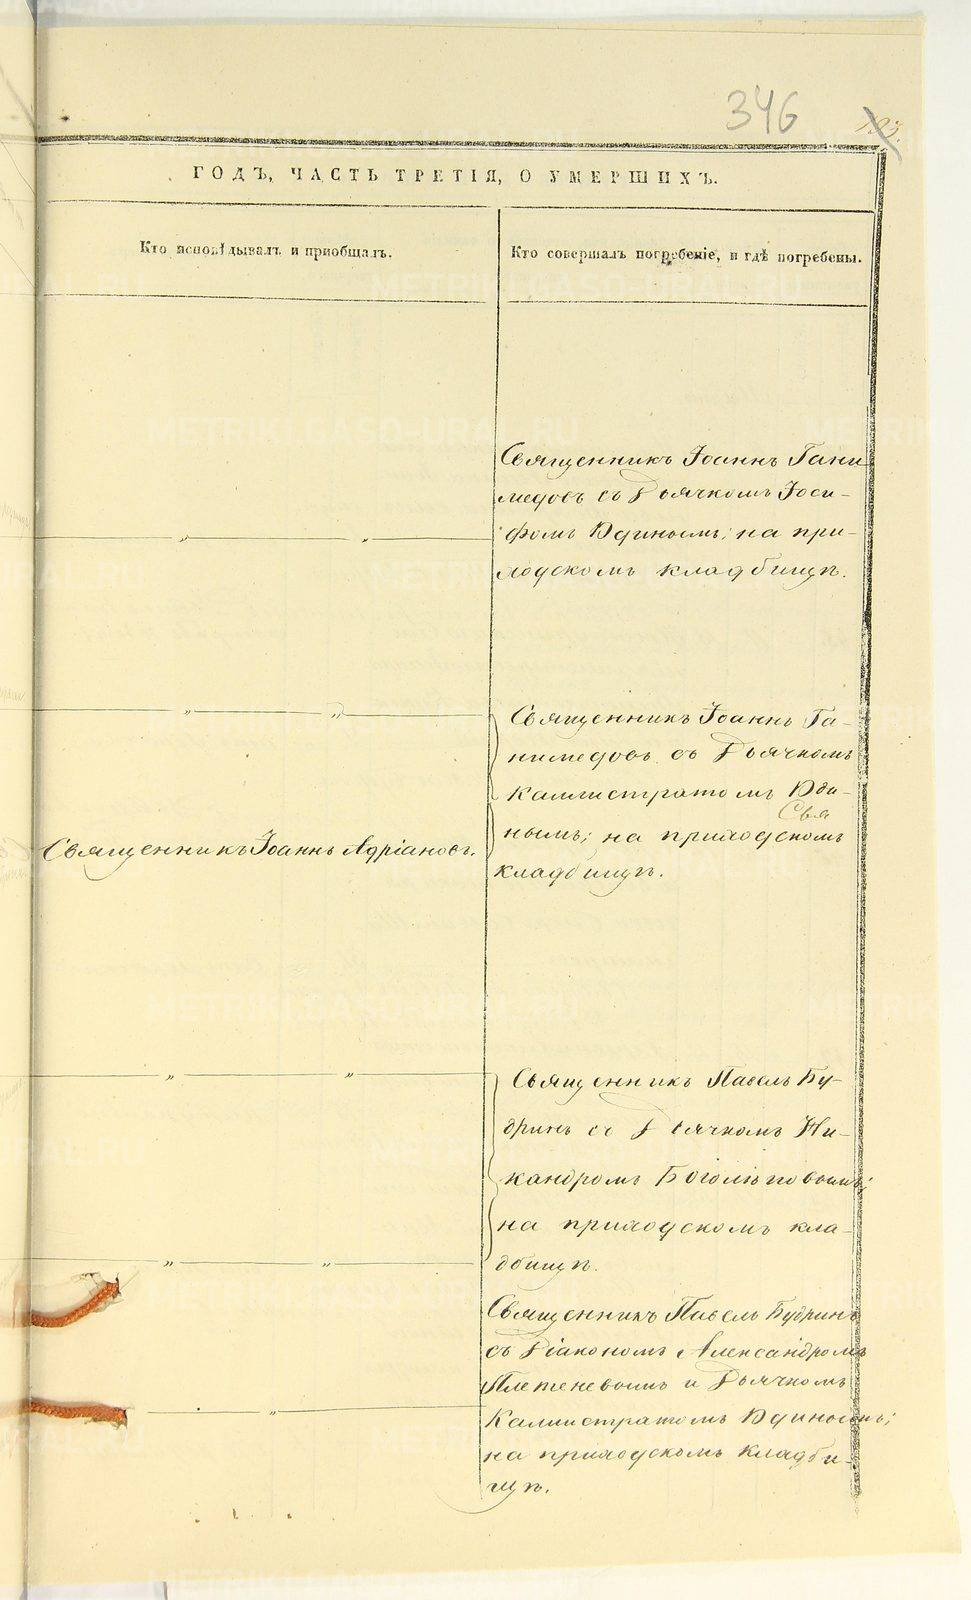 346
193
ГОДЪ, ЧАСТЬ ТРЕТІЯ, О УМЕРШИХЪ.
Кто исповѣдывалъ и приобщалъ.
Кто совершалъ погребеніе, и гдѣ погребены.
Священникъ Іоаннъ Гани-
медовъ съ Дьячкомъ Іоси-
фомъ Юдинымъ; на при-
ходскомъ кладбищѣ.
Священникъ Іоаннъ Га-
нимедовъ съ Дьячкомъ
Каллистратомъ Юди-
Свя
нымъ; на приходскомъ
кладбищѣ.
Священникъ Іоаннъ Адріановъ.
Священникъ Павелъ Бу-
дринъ съ Дьячкомъ Ни-
кандромъ Боголюповымъ;
на приходскомъ кла-
дбищѣ.
Священникъ Павелъ Будринъ
съ Діакономъ Александромъ
Плетеневымъ и Дьячкомъ
Каллистратомъ Юдинымъ;
на приходскомъ кладби-
щѣ.
METRIKI.GASO-URAL.RU